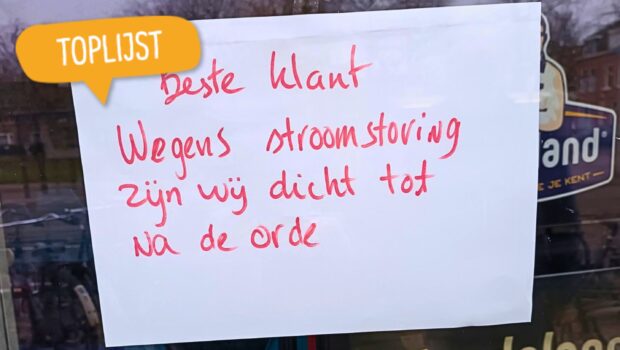 TOPLIJST
Beste klant
Wegens stroomstoring
zijn wij dicht tot
na de orde
and
E JE KENT